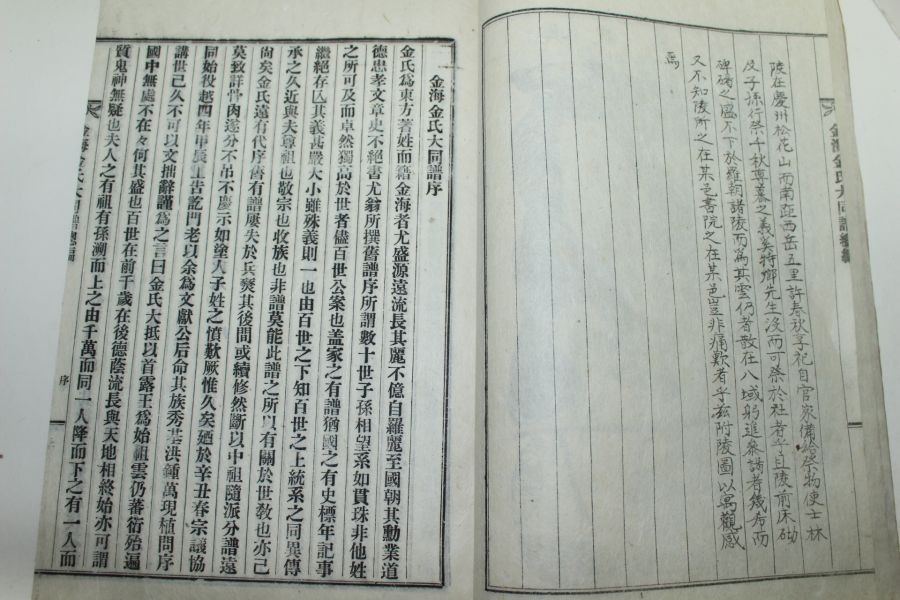 金海金氏大同譜總編
陵在慶州松花山而南距西岳五里許春秋享祀自官家備給祭物使士林
及子孫行祭千秋尊慕之義奚特鄉先生沒而可祭於社者乎且陵前床砌
碑碣之盛不下於羅朝諸陵而爲其雲仍者散在八域躬進參謁者幾希而
又不知陵所之在某邑書院之在某邑豈非痛歎者乎玆附陵圖以寓觀感
焉
金海金氏大同譜序
金氏爲東方著姓而籍金海者尤盛源遠流長其麗不億自羅麗至國朝其勳業道
德忠孝文章史不絕書尤翁所撰舊譜序所謂數十世子孫相望系如貫珠非他姓
之所可及而卓然獨高於世者儘百世公案也盖家之有譜猶國之有史標年記事
繼絕存亡其義甚嚴大小雖殊義則一也由百世之下知百世之上統系之同異傳
承之久近與夫尊祖也敬宗也收族也非譜莫能此譜之所以有關於世敎也亦已
尙矣金氏遠有代序舊有譜屢失於兵燹其後間或續修然斷以中祖隨派分譜遠
莫致詳骨肉遂分不吊不慶示如塗人子姓之憤歎厥惟久矣廼於辛丑春宗議協
同始役越四年甲辰工告訖門老以余爲文獻公后命其族秀基洪鍾萬現植問序
講世已久不可以文拙辭謹爲之言曰金氏大抵以首露王爲始祖雲仍蕃衍殆遍
國中無處不在々何其盛也百世在前千歲在後德蔭流長與天地相終始亦可謂
質鬼神無疑也夫人之有祖有孫溯而上之由千萬而同一人降而下之有一人而
金海金氏大同譜總編
序